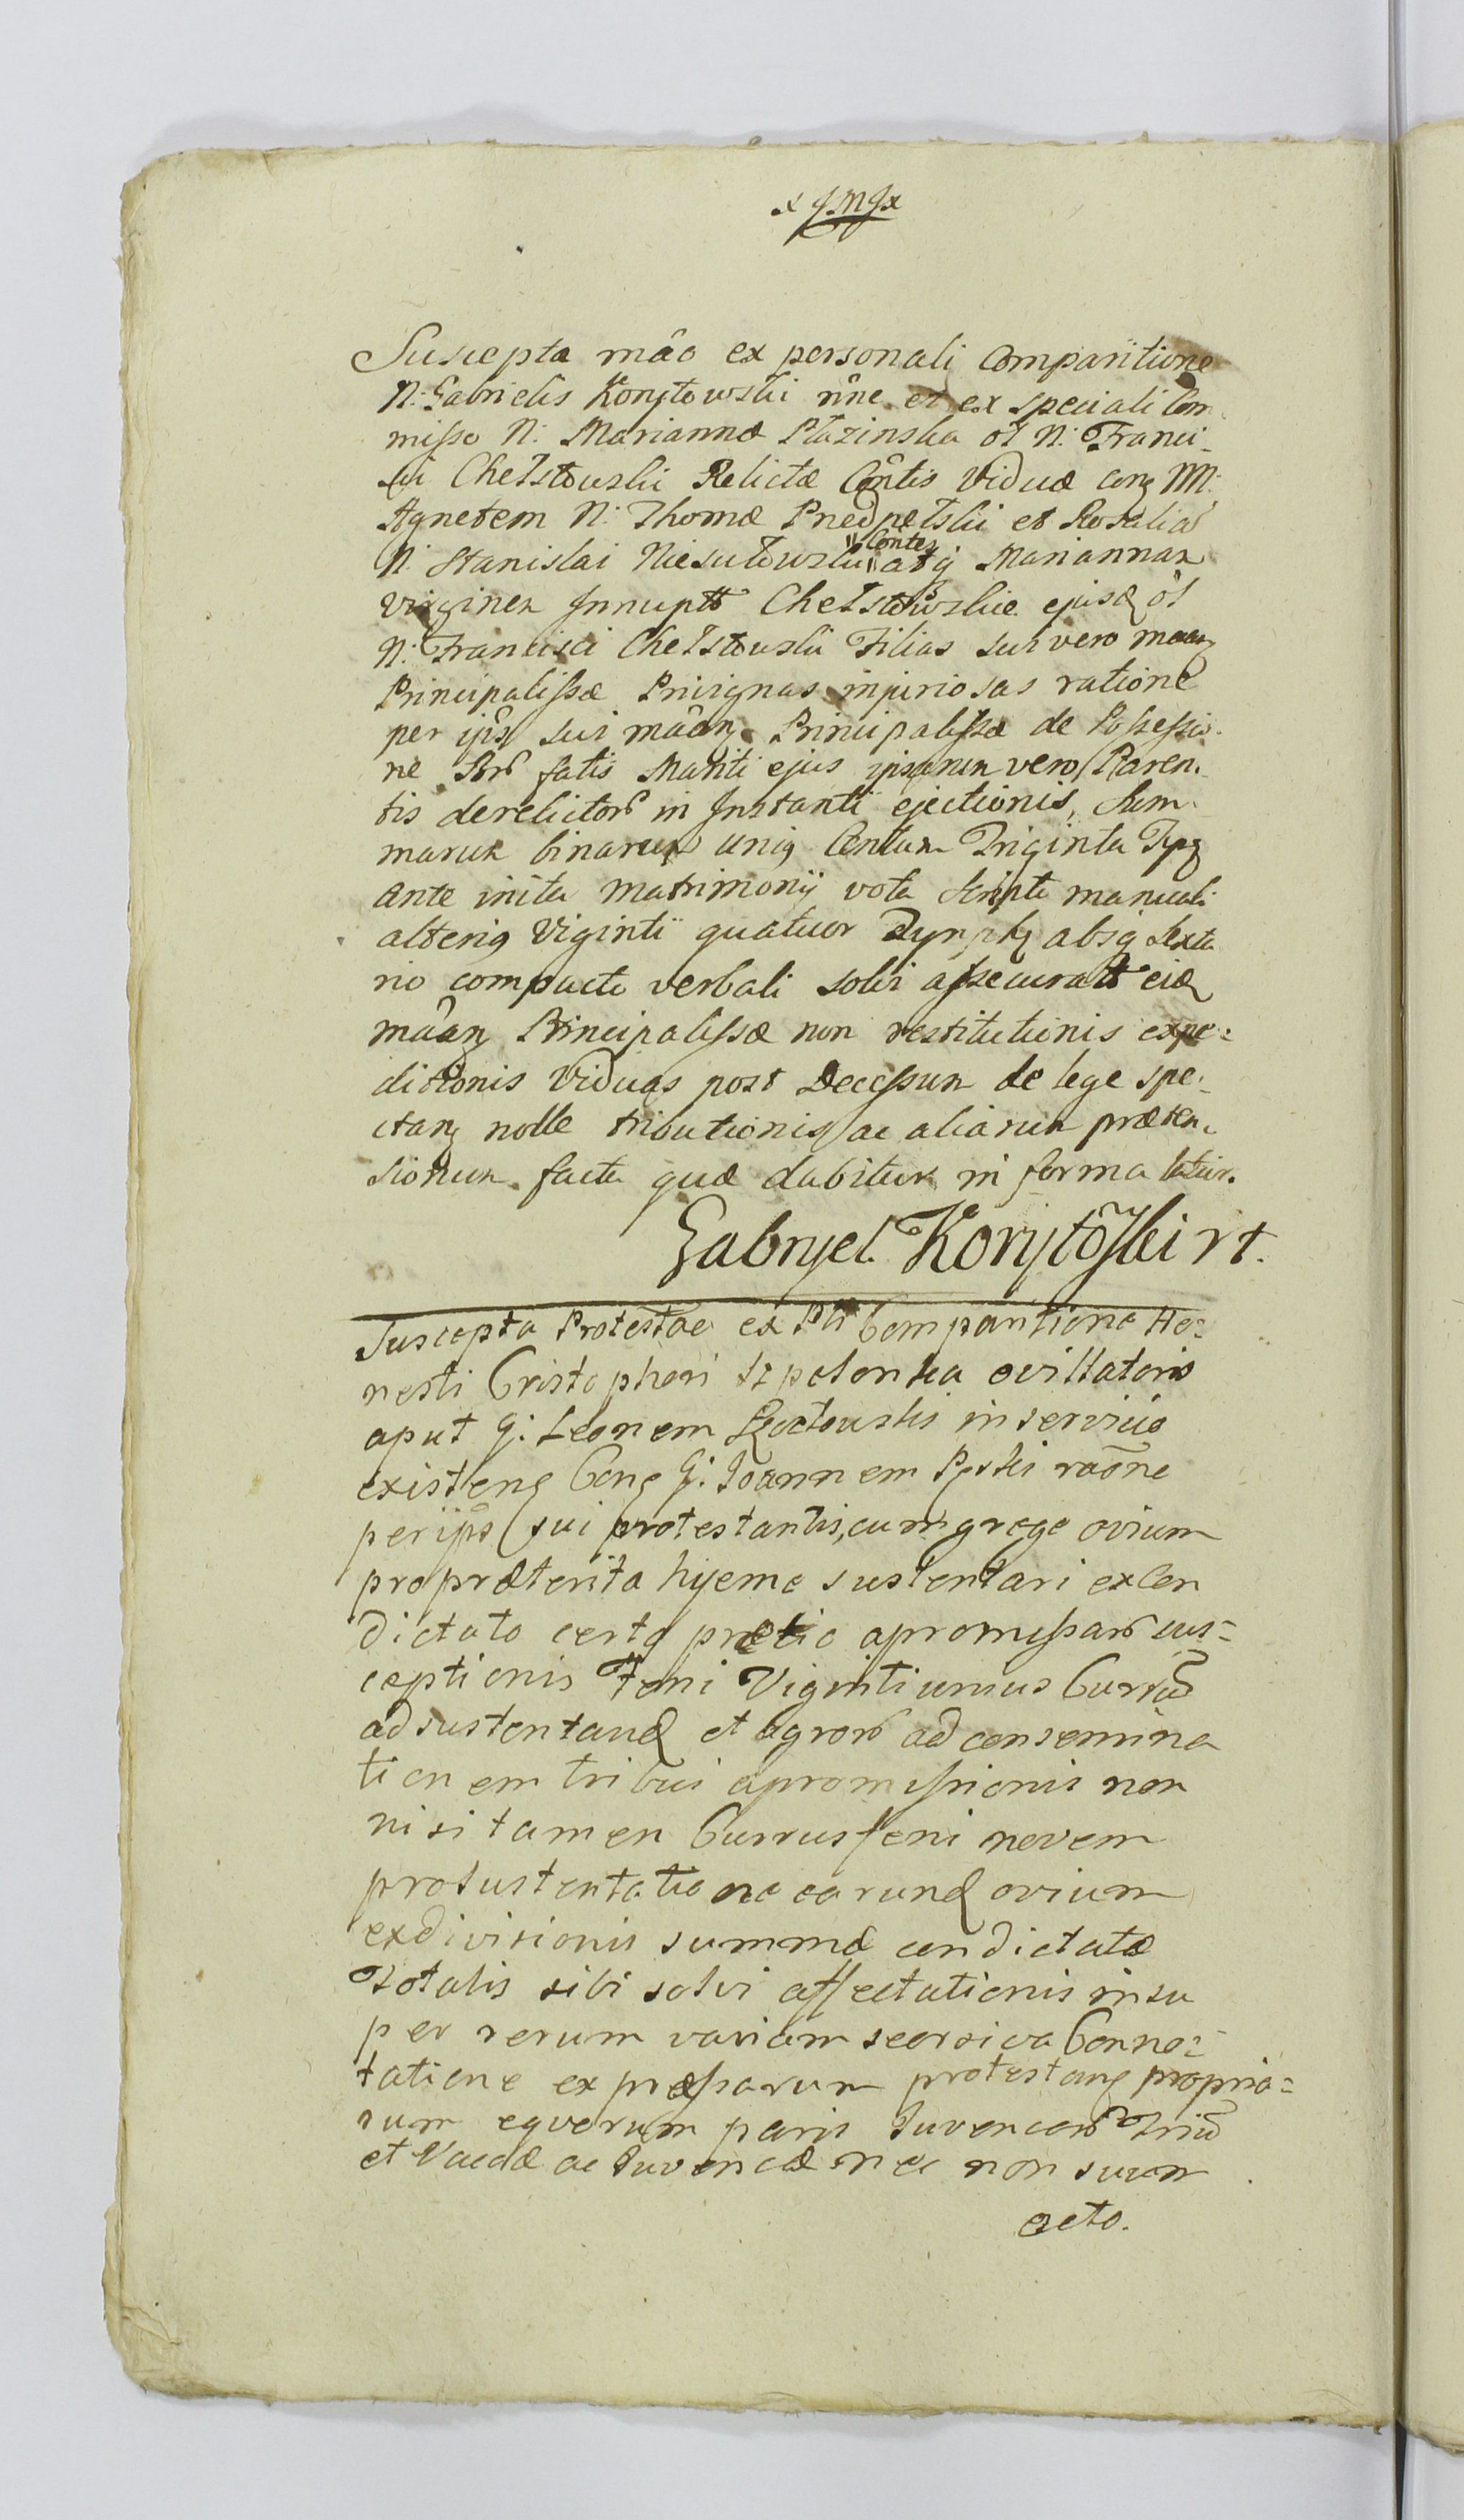 x JMJ x
Suscepta mâo ex personali Comparitione
N: Gabrielis Korytowski nîne et ex speciali Com
misso N: Mariannæ Płazinska ol N: Franci-
sci Chełstowski Relictæ Côntis Viduæ
Agnetem N: Thomæ et Rosaliã
N: Stanislai "Contes" atq Mariannam
virginem Innupt Chełstowskie ejusd ol
N: Francisci Chełstowski Filias sui vero
Principalissæ Privignas injuriosas ratione
per ips sui mâan Principalissæ de Possessio-
ne fatis Mariti ejus ipsarum vero Paren-
tis derelictor in Instanti ejectionis, Sum-
marum binarum unig Centum Triginta
ante inita Matrimonij vota Scripto manuali
alterig Viginti quatuor absq Sexta
rio compacto verbali solvi assecurat eid
mâan Principalissæ non restitutionis expe=
ditionis Viduas post Decessum de lege spe-
ctan nolle tributionis ac aliarum præten-
sionum facta quæ dabitur in forma latior.
Gabryel Korytôski
Suscepta Protestao ex Comparitione Ho=
nesti Cristopheri ovillatoris
aput G: Leonem in servicio
existen G: Joannem raõne
per ips sui protestantis, cum grege ovium
pro præterita hyeme sustentari ex Con
dictato certo prætio apromissar sus=
ceptionis Feni Viginti unius Curruũ
ad sustentand et agror ad consemina
tionem tribui apromissionis non
nisi tamen Currus feni novem
pro sustentatione earund ovium
ex divisionis summæ condictatæ
totalis sibi solvi affectationis insu
per rerum variam seorsiva Conno=
tatione expræssarum protestan propria=
rum eqvorum paris Juvencor Triũ
et Vaccæ ac Juvencæ nec non suum
octo.